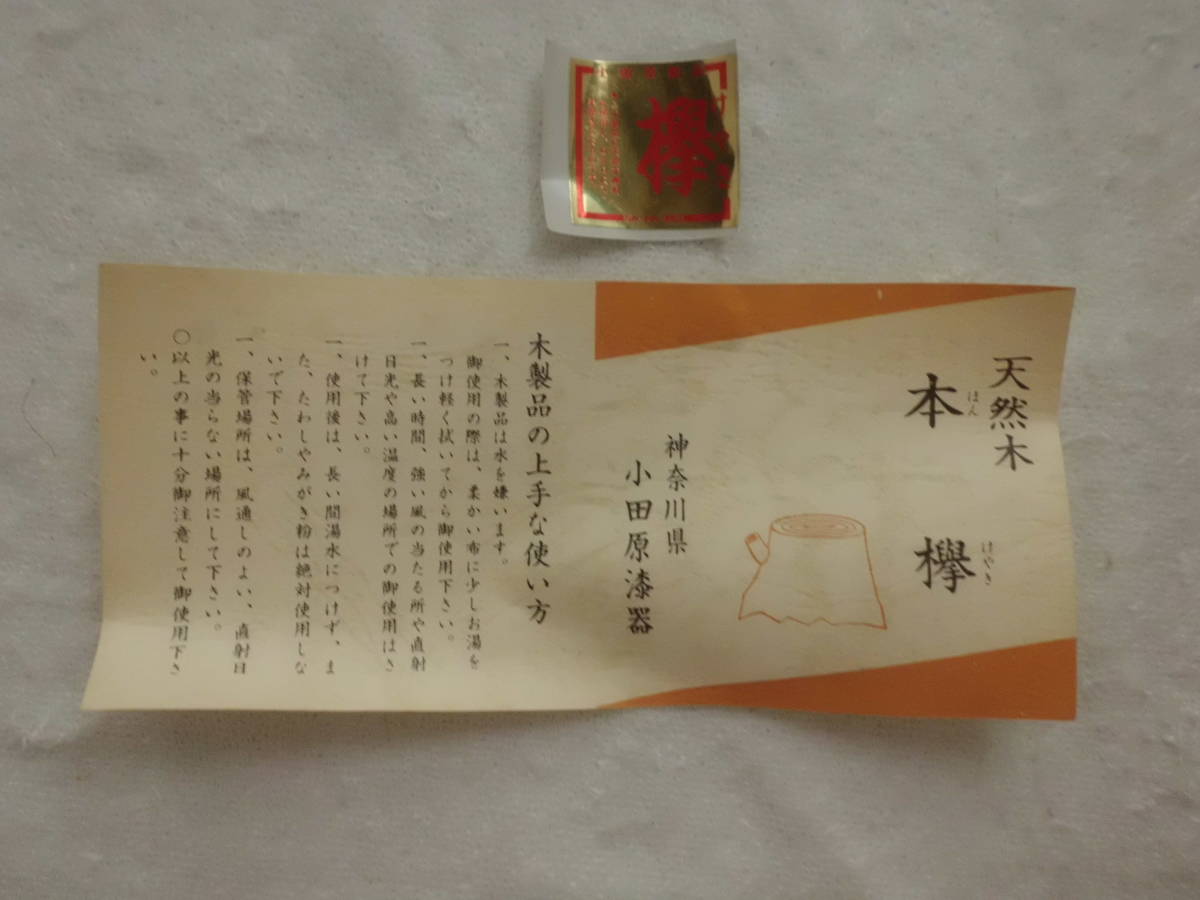 欅
天然木
本欅
ほん
けやき
神奈川県
小田原漆器
木製品の上手な使い方
一、木製品は水を嫌います。
御使用の際は、柔かい布に少しお湯を
つけ軽く拭いてから御使用下さい。
一、長い時間、強い風の当たる所や直射
日光や高い温度の場所での御使用はさ
けて下さい。
一、使用後は、長い間湯水につけず、ま
た、たわしやみがき粉は絶対使用しな
いで下さい。
一、保管場所は、風通しのよい、直射日
光の当らない場所にして下さい。
〇以上の事に十分御注意して御使用下さ
い。